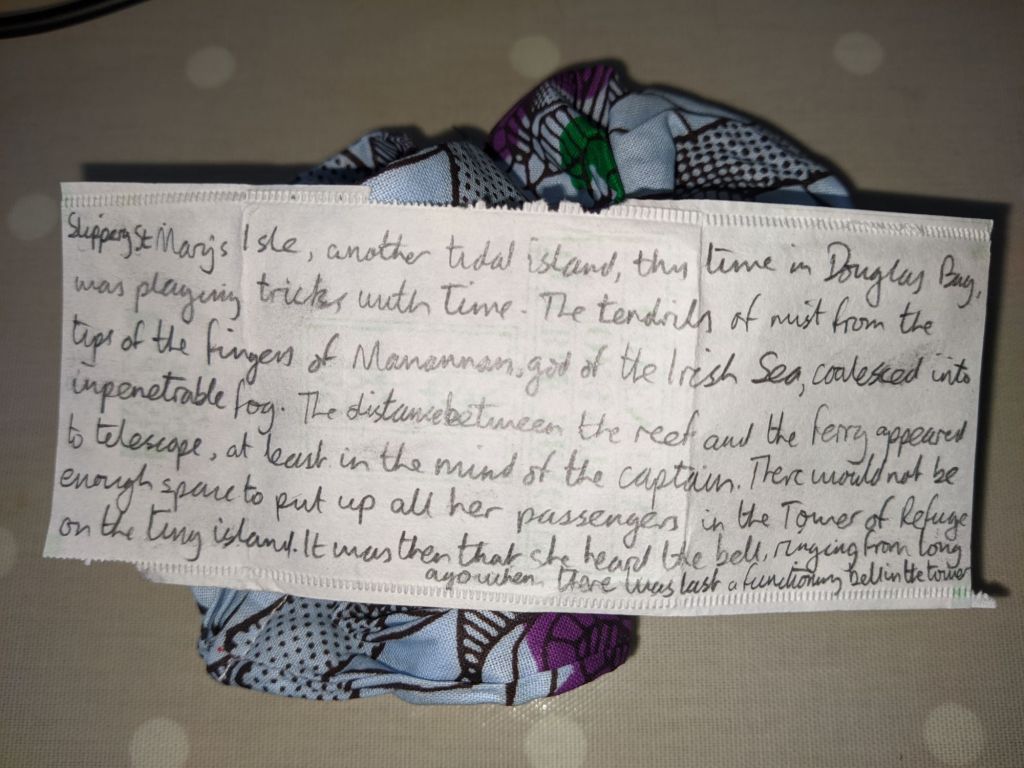 Slippery St Mary's Isle, another tidal island, this time in Douglas Bay,
was playing tricks with time. The tendrils of mist from the
tips of the fingers of Manannan, god of the Irish Sea, coalesced into
inpenetrable fog. The distance between the reef and the ferry appeared
to telescope, at least in the mind of the captain. There would not be
enough space to put up all her passengers in the Tower of Refuge
on the tiny island. It was then that she heard the bell, ringing from long
ago when there was last a functioning bell in the tower